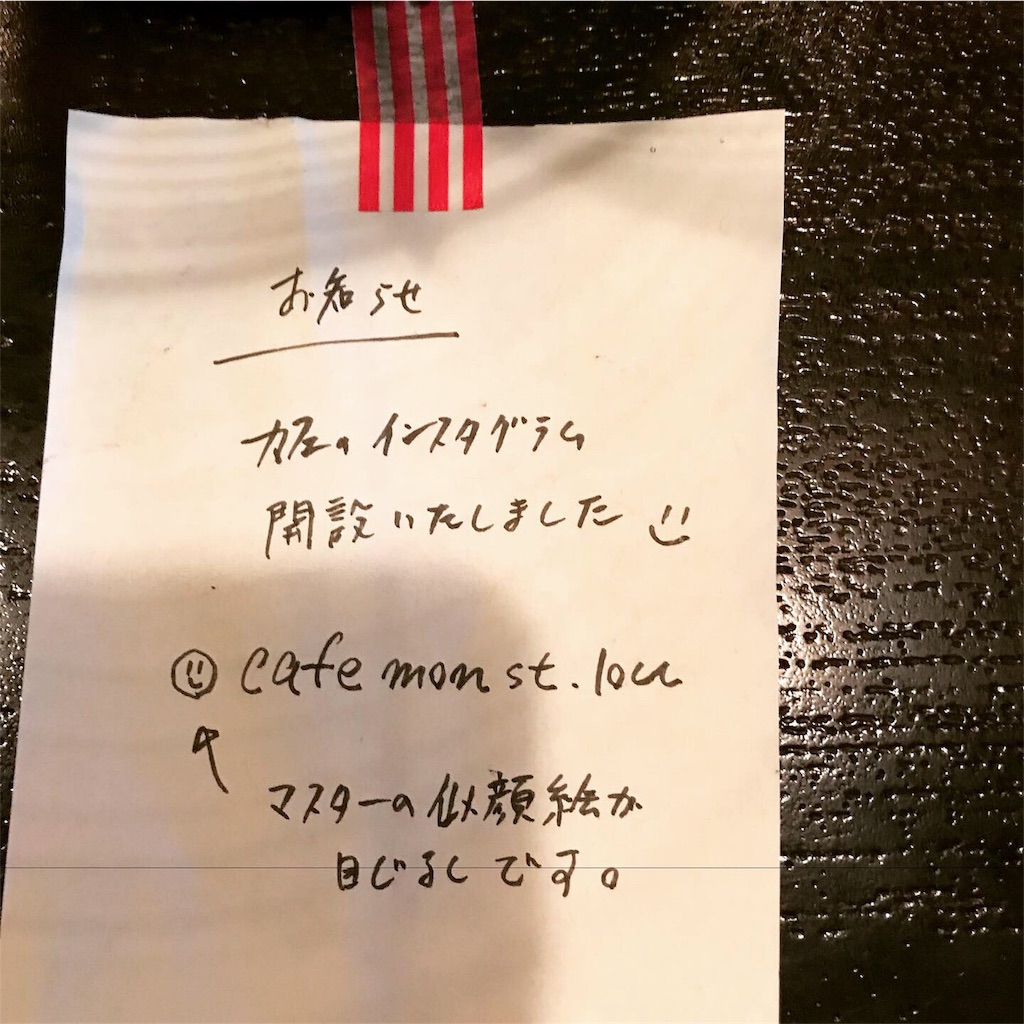 お知らせ
カフェの インスタグラム
開設いたしました
cafe mon st. lou
マスターの 似顔絵が
目じるしです。